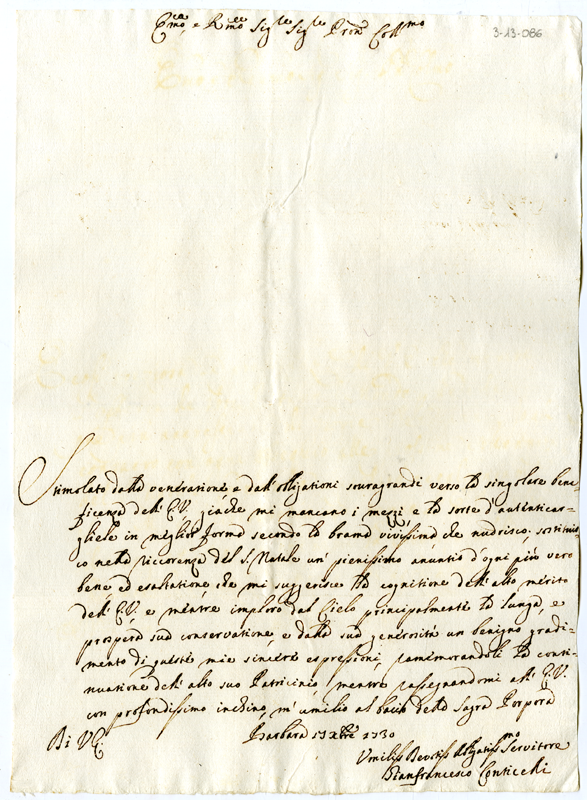 3-13-086
E.mo, e R.mo Sig.re Sig.re Pron Coll.mo
Stimolato dalla veneratione e dall'obligationi souragrandi verso la singolare bene
ficenza dell'E.V., giache mi mancano i mezzi e la sorte d'autenticar-
gliele in miglior forma secondo la brama vivissima che nudrisco, sostituis
co nella riccorenza del S. Natale un pienissimo anuntio d'ogni più vero
bene, ed esaltatione, che mi suggerisce la cognitione dell'alto merito
dell'E.V., e mentre imploro dal Cielo principalmente la lunga, e
prospera sua conservatione, e dalla sua generosità un benigno gradi-
mento di queste mie sincere espressioni, ramemorandoli la conti-
nuatione dell'alto suo Patricinio, mentre rassegnandomi all'E.V.
con profondissimo inchino, m'umilio al bacio della Sagra Porpora
Di V.E. Barbara 15 Xbre 1730
Umiliss Devotiss Obligatiss.mo Servitore
Gianfrancesco Conticelli